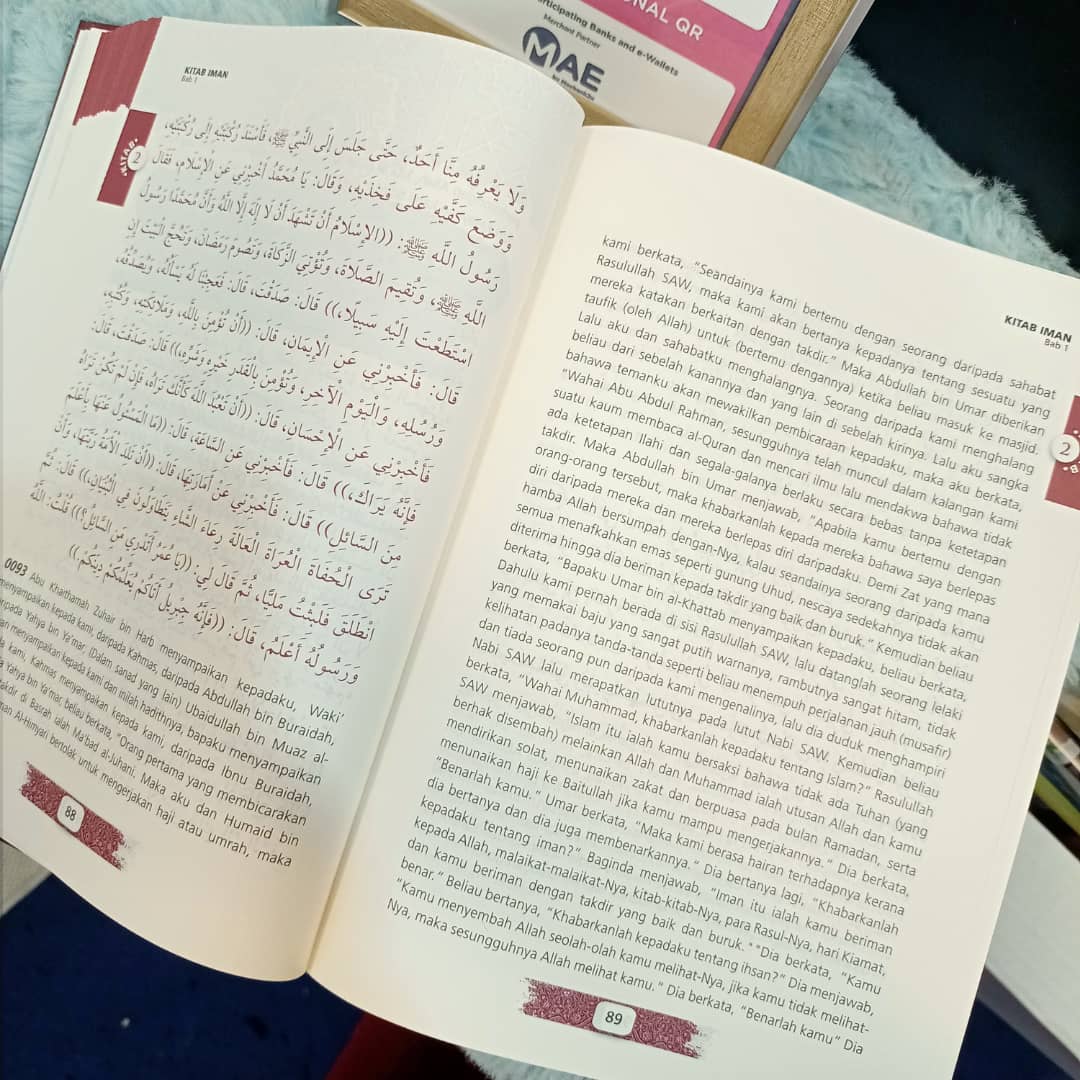 ONAL QR
rticipating Banks and e-Wallets
Merchant Partner
MAE
by Maybank2u
KITAB IMAN
Bab 1
KITAB
2
وَلَا يَعْرِفُهُ مِنَّا أَحَدٌ، حَتَّى جَلَسَ إِلَى النَّبِيِّ ﷺ، فَأَسْنَدَ رُكْبَتَيْهِ إِلَى رُكْبَتَيْهِ،
وَوَضَعَ كَفَّيْهِ عَلَى فَخِذَيْهِ، وَقَالَ: يَا مُحَمَّدُ أَخْبِرْنِي عَنِ الْإِسْلَامِ، فَقَالَ
رَسُولُ اللَّهِ ﷺ: ((الْإِسْلَامُ أَنْ تَشْهَدَ أَنْ لَا إِلَهَ إِلَّا اللَّهُ وَأَنَّ مُحَمَّدًا رَسُولُ
اللَّهِ ﷺ، وَتُقِيمَ الصَّلَاةَ، وَتُؤْتِيَ الزَّكَاةَ، وَتَصُومَ رَمَضَانَ، وَتَحُجَّ الْبَيْتَ إِنِ
اسْتَطَعْتَ إِلَيْهِ سَبِيلًا،)) قَالَ: صَدَقْتَ، قَالَ: فَعَجِبْنَا لَهُ يَسْأَلُهُ، وَيُصَدِّقُهُ،
قَالَ: فَأَخْبِرْنِي عَنِ الْإِيمَانِ، قَالَ: ((أَنْ تُؤْمِنَ بِاللَّهِ، وَمَلَائِكَتِهِ، وَكُتُبِهِ،
وَرُسُلِهِ، وَالْيَوْمِ الْآخِرِ، وَتُؤْمِنَ بِالْقَدَرِ خَيْرِهِ وَشَرِّهِ،)) قَالَ: صَدَقْتَ، قَالَ:
فَأَخْبِرْنِي عَنِ الْإِحْسَانِ، قَالَ: ((أَنْ تَعْبُدَ اللَّهَ كَأَنَّكَ تَرَاهُ، فَإِنْ لَمْ تَكُنْ تَرَاهُ
فَإِنَّهُ يَرَاكَ،)) قَالَ: فَأَخْبِرْنِي عَنِ السَّاعَةِ، قَالَ: ((مَا الْمَسْئُولُ عَنْهَا بِأَعْلَمَ
مِنَ السَّائِلِ)) قَالَ: فَأَخْبِرْنِي عَنْ أَمَارَتِهَا، قَالَ: ((أَنْ تَلِدَ الْأَمَةُ رَبَّتَهَا، وَأَنْ
تَرَى الْحُفَاةَ الْعُرَاةَ الْعَالَةَ رِعَاءَ الشَّاءِ يَتَطَاوَلُونَ فِي الْبُنْيَانِ،)) قَالَ: ثُمَّ
انْطَلَقَ فَلَبِثْتُ مَلِيًّا، ثُمَّ قَالَ لِي: ((يَا عُمَرُ أَتَدْرِي مَنِ السَّائِلُ؟)) قُلْتُ: اللَّهُ
وَرَسُولُهُ أَعْلَمُ، قَالَ: ((فَإِنَّهُ جِبْرِيلُ أَتَاكُمْ يُعَلِّمُكُمْ دِينَكُمْ.))
0093 Abu Khaithamah Zuhair bin Harb menyampaikan kepadaku, Waki'
menyampaikan kepada kami, daripada Kahmas, daripada Abdullah bin Buraidah,
daripada Yahya bin Ya'mar, (Dalam sanad yang lain) Ubaidullah bin Muaz al-
menyampaikan kepada kami dan inilah hadithnya, bapaku menyampaikan
kami, Kahmas menyampaikan kepada kami, daripada Ibnu Buraidah,
Yahya bin Ya'mar, beliau berkata, "Orang pertama yang membicarakan
takdir di Basrah ialah Ma'bad al-Juhani. Maka aku dan Humaid bin
Al-Himyari bertolak untuk mengerjakan haji atau umrah, maka
88
KITAB IMAN
Bab 1
2
kami berkata, "Seandainya kami bertemu dengan seorang daripada sahabat
Rasulullah SAW, maka kami akan bertanya kepadanya tentang sesuatu yang
mereka katakan berkaitan dengan takdir." Maka Abdullah bin Umar diberikan
taufik (oleh Allah) untuk (bertemu dengannya) ketika beliau masuk ke masjid.
Lalu aku dan sahabatku menghalangnya. Seorang daripada kami menghalang
beliau dari sebelah kanannya dan yang lain di sebelah kirinya. Lalu aku sangka
bahawa temanku akan mewakilkan pembicaraan kepadaku, maka aku berkata,
"Wahai Abu Abdul Rahman, sesungguhnya telah muncul dalam kalangan kami
suatu kaum membaca al-Quran dan mencari ilmu lalu mendakwa bahawa tidak
ada ketetapan Ilahi dan segala-galanya berlaku secara bebas tanpa ketetapan
takdir. Maka Abdullah bin Umar menjawab, "Apabila kamu bertemu dengan
orang-orang tersebut, maka khabarkanlah kepada mereka bahawa saya berlepas
diri daripada mereka dan mereka berlepas diri daripadaku. Demi Zat yang mana
hamba Allah bersumpah dengan-Nya, kalau seandainya seorang daripada kamu
semua menafkahkan emas seperti gunung Uhud, nescaya sedekahnya tidak akan
diterima hingga dia beriman kepada takdir yang baik dan buruk." Kemudian beliau
berkata, "Bapaku Umar bin al-Khattab menyampaikan kepadaku, beliau berkata,
Dahulu kami pernah berada di sisi Rasulullah SAW, lalu datanglah seorang lelaki
yang memakai baju yang sangat putih warnanya, rambutnya sangat hitam, tidak
kelihatan padanya tanda-tanda seperti beliau menempuh perjalanan jauh (musafir)
dan tiada seorang pun daripada kami mengenalinya, lalu dia duduk menghampiri
Nabi SAW lalu merapatkan lututnya pada lutut Nabi SAW. Kemudian beliau
berkata, "Wahai Muhammad, khabarkanlah kepadaku tentang Islam?" Rasulullah
SAW menjawab, "Islam itu ialah kamu bersaksi bahawa tidak ada Tuhan (yang
berhak disembah) melainkan Allah dan Muhammad ialah utusan Allah dan kamu
mendirikan solat, menunaikan zakat dan berpuasa pada bulan Ramadan, serta
menunaikan haji ke Baitullah jika kamu mampu mengerjakannya." Dia berkata,
"Benarlah kamu." Umar berkata, "Maka kami berasa hairan terhadapnya kerana
dia bertanya dan dia juga membenarkannya." Dia bertanya lagi, "Khabarkanlah
kepadaku tentang iman?" Baginda menjawab, "Iman itu ialah kamu beriman
kepada Allah, malaikat-malaikat-Nya, kitab-kitab-Nya, para Rasul-Nya, hari Kiamat,
dan kamu beriman dengan takdir yang baik dan buruk." "Dia berkata, "Kamu
benar." Beliau bertanya, "Khabarkanlah kepadaku tentang ihsan?" Dia menjawab,
"Kamu menyembah Allah seolah-olah kamu melihat-Nya, jika kamu tidak melihat-
Nya, maka sesungguhnya Allah melihat kamu." Dia berkata, "Benarlah kamu" Dia
89